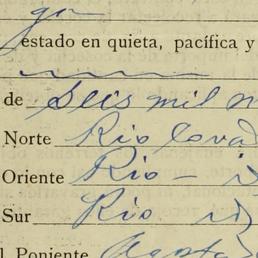 estado en quieta, pacífica y
de Seis mil
Norte Rio
Oriente Rio -
Sur Rio id
Poniente